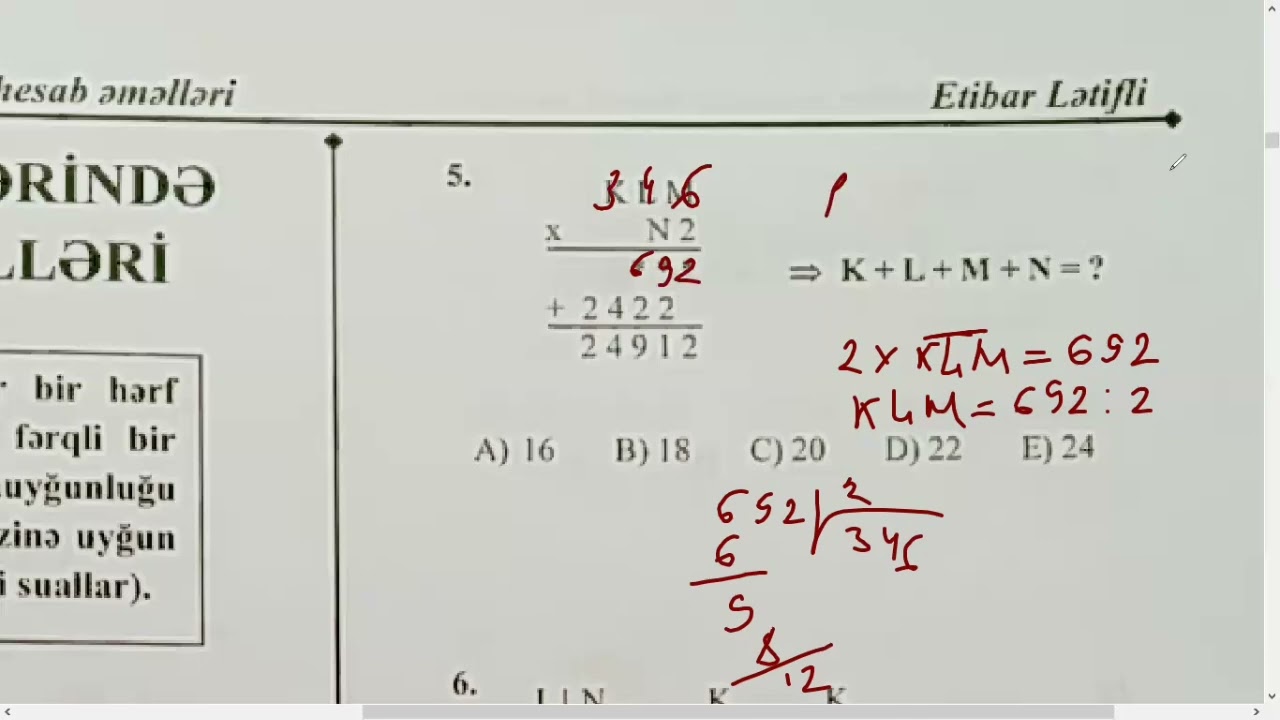 hesab əməlləri
Etibar Lətifli
ƏRİNDƏ
LLƏRİ
bir hərf
fərqli bir
uyğunluğu
zinə uyğun
i suallar).
5.
K L M
346
x N 2
692
+ 2 4 2 2
2 4 9 1 2
⇒ K + L + M + N = ?
2 x KLM = 692
KLM = 692 : 2
A) 16 B) 18 C) 20 D) 22 E) 24
692 2
6 34
9
8
12
6.
K K